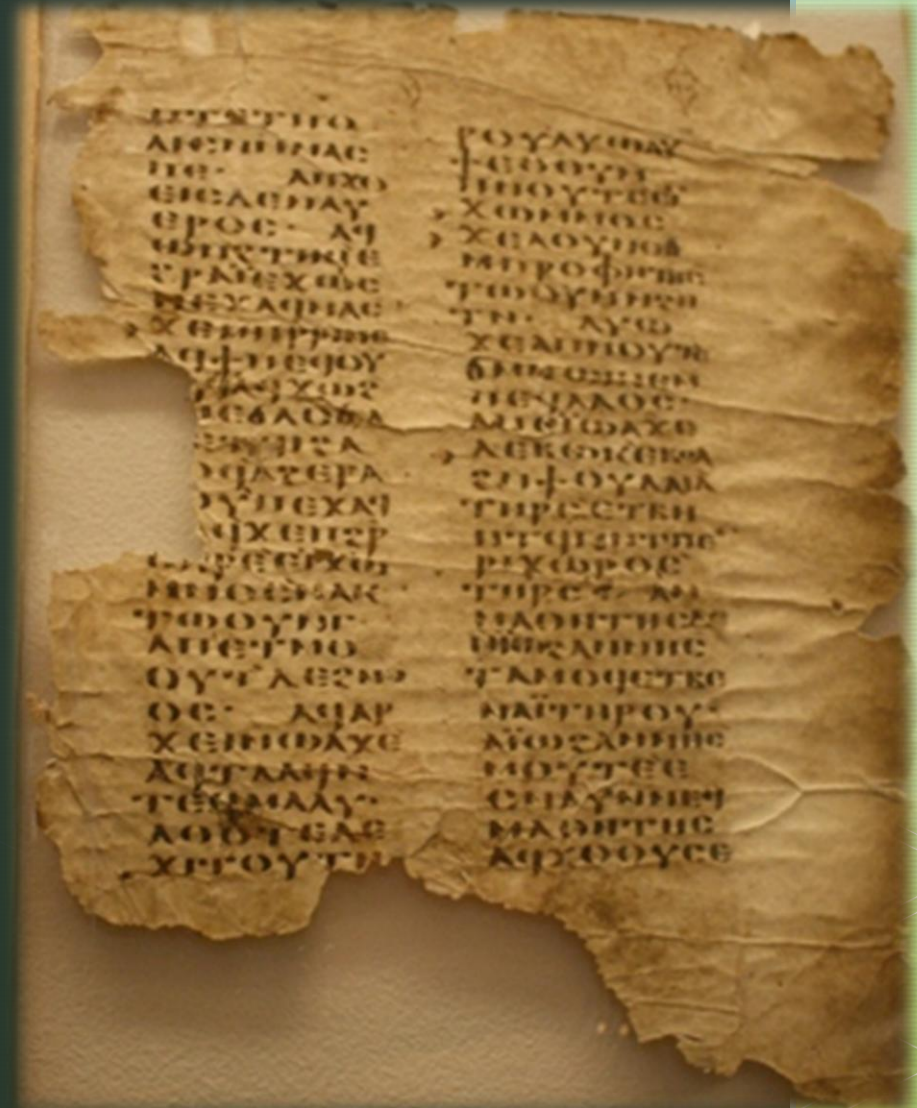 ⲛⲧⲉⲧⲡⲟ
ⲗⲓⲥⲛⲙⲙⲁⲥ
ⲡⲉ· ⲁⲡϫⲟ
ⲉⲓⲥⲇⲉⲛⲁⲩ
ⲉⲣⲟⲥ· ⲁϥ
ϣⲛϩⲧⲏϥⲉ
ϩⲣⲁⲓⲉϫⲱⲥ
ⲡⲉϫⲁϥⲛⲁⲥ
ϫⲉⲙⲡⲣⲣⲓⲙⲉ
ⲁϥϯⲡⲉϥⲟⲩ
ⲟⲓⲁϥϫⲱϩ
ⲡⲉϭⲗⲟϭⲁ
ⲛⲉⲧϥⲓϩⲁ
ⲟϥⲁϩⲉⲣⲁ
ⲟⲩⲡⲉϫⲁϥ
ϥϫⲉⲡϩⲣ
ϣⲓⲣⲉⲉⲓϫⲱ
ⲙⲙⲟⲥⲛⲁⲕ
ⲧⲱⲟⲩⲛⲅ·
ⲁⲡⲉⲧⲙⲟ
ⲟⲩⲧⲇⲉϩⲙⲟ
ⲟⲥ· ⲁϥⲁⲣ
ⲭⲉⲓⲛϣⲁϫⲉ
ⲁϥⲧⲁⲁϥⲛ
ⲧⲉϥⲙⲁⲁⲩ·
ⲁⲑⲟⲧⲉⲇⲉ
ϫⲓⲧⲟⲩⲧⲏ
ⲣⲟⲩⲁⲩⲱⲁⲩ
ϯⲉⲟⲟⲩⲙ
ⲡⲛⲟⲩⲧⲉⲉⲩ
ϫⲱⲙⲙⲟⲥ
ϫⲉⲁⲟⲩⲛⲟϭ
ⲙⲡⲣⲟⲫⲏⲧⲏⲥ
ⲧⲱⲟⲩⲛⲛϩⲏ
ⲧⲛ· ⲁⲩⲱ
ϫⲉⲁⲡⲛⲟⲩⲧⲉ
ϭⲙⲡϣⲓⲛⲉⲙ
ⲡⲉϥⲗⲁⲟⲥ·
ⲁⲡⲉⲓϣⲁϫⲉ
ⲇⲉⲃⲱⲕⲉⲃⲟⲗ
ϩⲛϯⲟⲩⲇⲁⲓⲁ
ⲧⲏⲣⲥⲉⲧⲃⲏ
ⲏⲧϥⲙⲛⲧⲡⲉ
ⲣⲓⲭⲱⲣⲟⲥ
ⲧⲏⲣⲥ· ⲁⲙ
ⲙⲁⲑⲏⲧⲏⲥⲇⲉ
ⲛⲓⲱϩⲁⲛⲛⲏⲥ
ⲧⲁⲙⲟϥⲉⲧⲃⲉ
ⲛⲁⲓ̈ⲧⲏⲣⲟⲩ·
ⲁⲓ̈ⲱϩⲁⲛⲛⲏⲥ
ⲙⲟⲩⲧⲉⲉ
ⲥⲛⲁⲩⲛⲛⲉϥ
ⲙⲁⲑⲏⲧⲏⲥ
ⲁϥϫⲟⲟⲩⲥⲉ